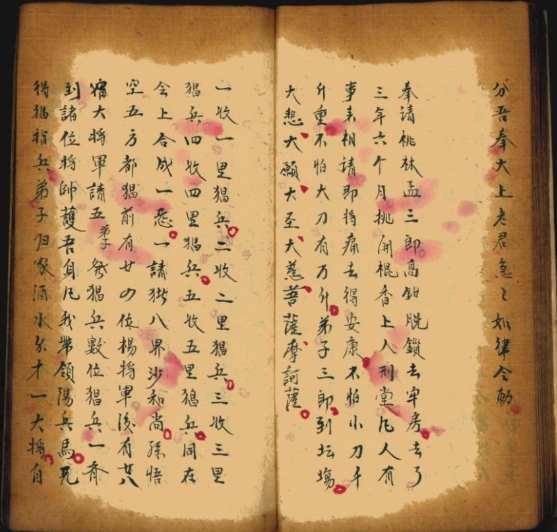 分吾奉大上老君急々如律令勅
奉請桃林孟三郎高鉗脱鎖去牢房去了
三年六个月挑開棍香上人刑堂凡人有
事来相請即将痛去得安康不怕小刀千
斤重不怕大刀有万斤弟子三郎到坛場
大悲大願大至大慈菩薩摩訶薩
一收一里猖兵二收二里猖兵三收三里
猖兵四收四里猖兵五收五里猖兵同在
会上合成一恶一請猪八界沙和尚孫悟
空五方都猖前有廿四位楊将軍後有廿八
宿大将軍請五弟子発猖兵数位猖兵一斉
到諸位将帥護吾身凡我帯領陽兵馬死
得猖指兵弟子归家酒水分才一大将自